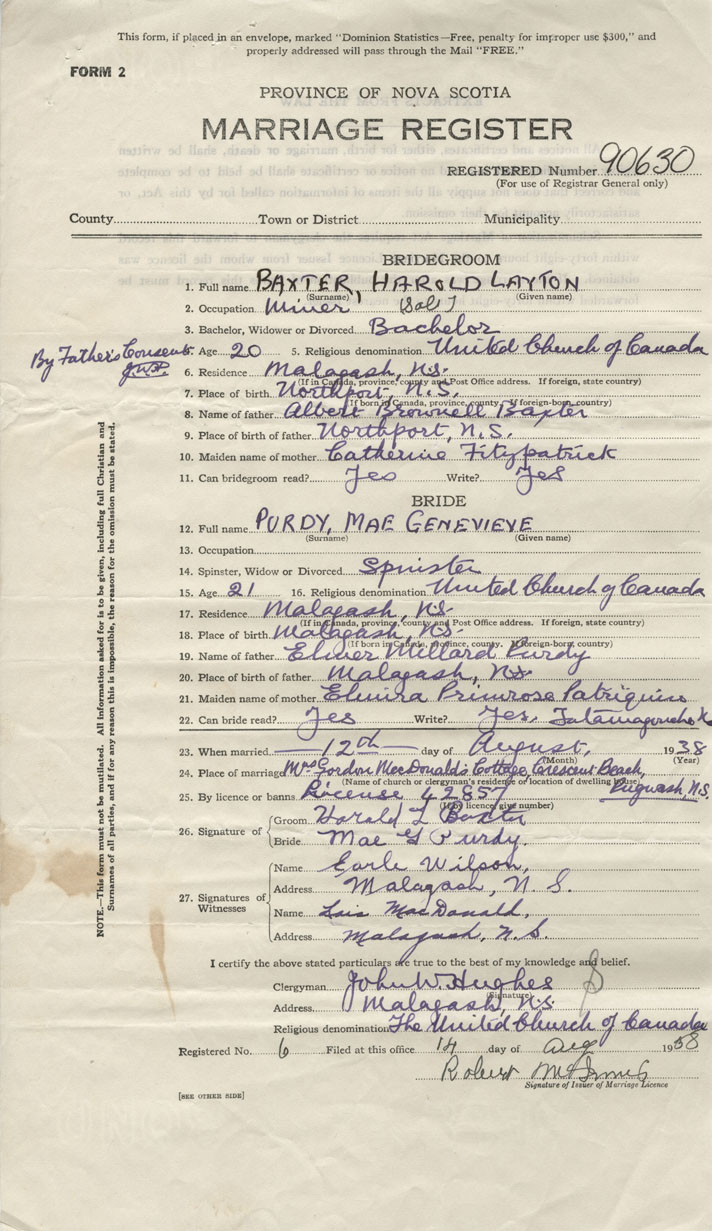 This form, if placed in an envelope, marked "Dominion Statistics—Free, penalty for improper use $300," and
properly addressed will pass through the Mail "FREE."
FORM 2
PROVINCE OF NOVA SCOTIA
MARRIAGE REGISTER
REGISTERED Number 90630
(For use of Registrar General only)
County Town or District Municipality
BRIDEGROOM
1. Full name BAXTER, HAROLD LAYTON
(Surname) (Given name)
2. Occupation Miner (Salt)
3. Bachelor, Widower or Divorced Bachelor
By Father's Consent. Age 20 5. Religious denomination United Church of Canada
J.W.H.
6. Residence Malagash, N.S.
(If in Canada, province, county and Post Office address. If foreign, state country)
7. Place of birth Northport, N.S.
(If born in Canada, province, county, or foreign-born, country)
8. Name of father Albert Brownell Baxter
9. Place of birth of father Northport, N.S.
10. Maiden name of mother Catherine Fitzpatrick
11. Can bridegroom read? Yes Write? Yes
BRIDE
12. Full name PURDY, MAE GENEVIEVE
(Surname) (Given name)
13. Occupation
14. Spinster, Widow or Divorced Spinster
15. Age 21 16. Religious denomination United Church of Canada
17. Residence Malagash, N.S.
(If in Canada, province, county and Post Office address. If foreign, state country)
18. Place of birth Malagash, N.S.
(If born in Canada, province, county. If foreign-born, country)
19. Name of father Elmer Millard Purdy
20. Place of birth of father Malagash, N.S.
21. Maiden name of mother Elmira Primrose Patriquin
22. Can bride read? Yes Write? Yes. Tatamagouche
23. When married 12th day of August, 1938
(Month) (Year)
24. Place of marriage Mrs Gordon MacDonald's Cottage, Crescent Beach,
(Name of church or clergyman's residence or location of dwelling house)
Pugwash, N.S.
25. By licence or banns License 42857
(If by licence, give number)
26. Signature of Groom Harold L Baxter
Bride Mae G Purdy.
27. Signatures of Witnesses
Name Earle Wilson,
Address Malagash, N. S.
Name Lois MacDonald,
Address Malagash, N. S.
I certify the above stated particulars are true to the best of my knowledge and belief.
Clergyman John W. Hughes
(Signature)
Address Malagash, N.S.
Religious denomination The United Church of Canada
Registered No. 6 Filed at this office 14 day of Aug 1938
Robert
Signature of Issuer of Marriage Licence
[SEE OTHER SIDE]
NOTE.—This form must not be mutilated. All information asked for is to be given, including full Christian and
Surnames of all parties, and if for any reason this is impossible, the reason for the omission must be stated.